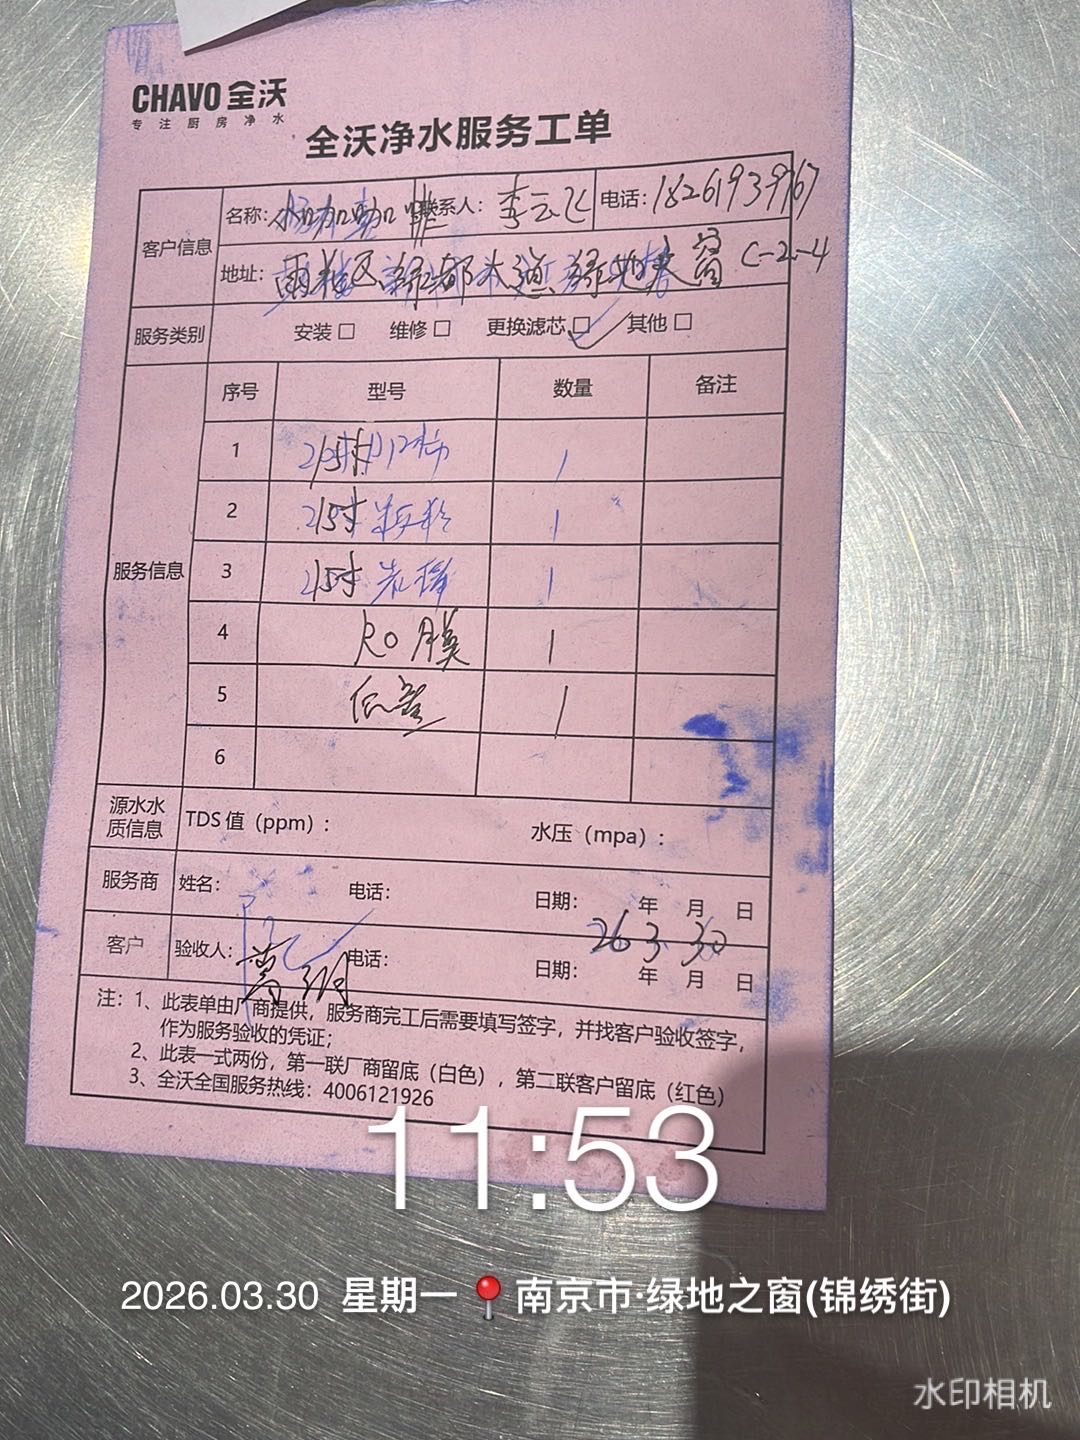 CHAVO 全沃
专注厨房净水
全沃净水服务工单
客户信息
名称： 联系人：李云飞 电话：18261939767
地址： 大道绿地之窗 C-2-4
服务类别 安装□ 维修□ 更换滤芯□✓ 其他□
服务信息
序号 型号 数量 备注
1 1
2 215寸 1
3 215寸 1
4 RO膜 1
5 1
6
源水水质信息 TDS值（ppm）： 水压（mpa）：
服务商 姓名： 电话： 日期： 年 月 日
26 3 30
客户 验收人： 电话： 日期： 年 月 日
注：1、此表单由厂商提供，服务商完工后需要填写签字，并找客户验收签字，
作为服务验收的凭证；
2、此表一式两份，第一联厂商留底（白色），第二联客户留底（红色）
3、全沃全国服务热线：4006121926
11:53
2026.03.30 星期一 📍南京市·绿地之窗(锦绣街)
水印相机